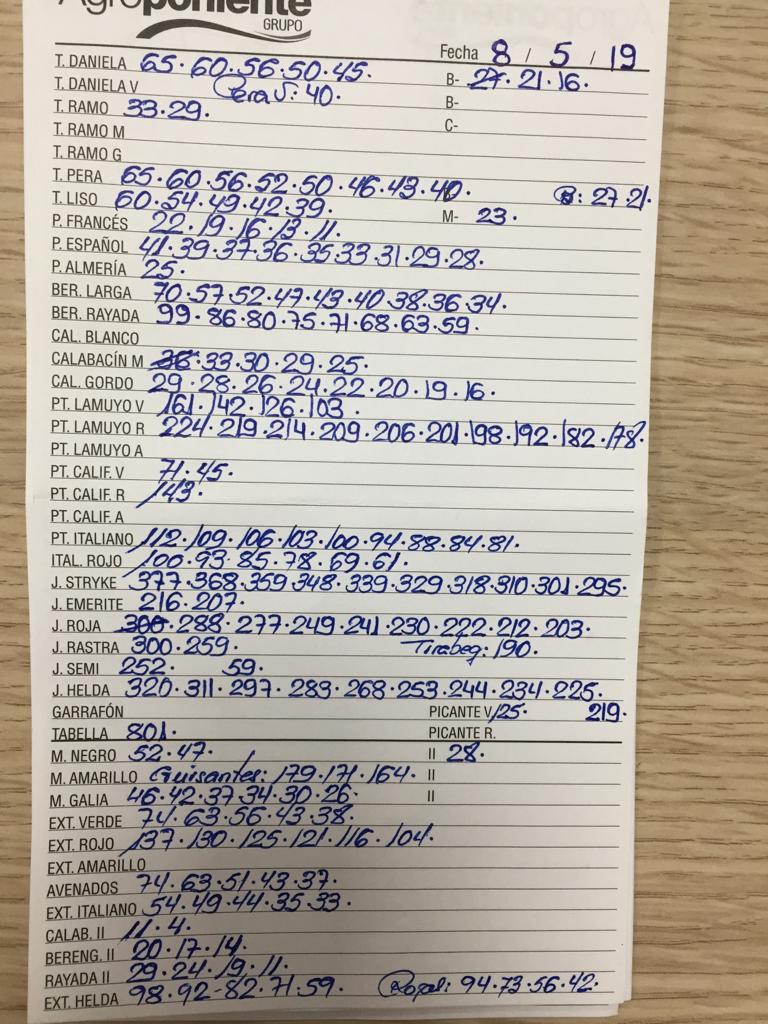 Agroponiente
GRUPO
Fecha 8 / 5 / 19
T. DANELA 65·60·56·50·45· B- 27·21·16·
T. DANIELA V Pera V: 40· B-
T. RAMO 33·29· C-
T. RAMO M
T. RAMO G
T. PERA 65·60·56·52·50·46·43·40· B: 27·21·
T. LISO 60·54·49·42·39· M- 23·
P. FRANCÉS 22·19·16·13·11·
P. ESPAÑOL 41·39·37·36·35·33·31·29·28·
P. ALMERÍA 25·
BER. LARGA 70·57·52·47·43·40·38·36·34·
BER. RAYADA 99·86·80·75·71·68·63·59·
CAL. BLANCO
CALABACÍN M 36·33·30·29·25·
CAL. GORDO 29·28·26·24·22·20·19·16·
PT. LAMUYO V 161·142·126·103·
PT. LAMUYO R 224·219·214·209·206·201·198·192·182·178·
PT. LAMUYO A
PT. CALIF. V 71·45·
PT. CALIF. R 143·
PT. CALIF. A
PT. ITALIANO 112·109·106·103·100·94·88·84·81·
ITAL. ROJO 100·93·85·78·69·61·
J. STRYKE 377·368·359·348·339·329·318·310·301·295·
J. EMERITE 216·207·
J. ROJA 300·288·277·249·241·230·222·212·203·
J. RASTRA 300·259· Tirabeg: 190·
J. SEMI 252· 59·
J. HELDA 320·311·297·283·268·253·244·234·225·
GARRAFÓN PICANTE V 125· 219·
TABELLA 801· PICANTE R.
M. NEGRO 52·47· II 28·
M. AMARILLO Guisantes: 179·171·164· II
M. GALIA 46·42·37·34·30·26· II
EXT. VERDE 74·63·56·43·38·
EXT. ROJO 137·130·125·121·116·104·
EXT. AMARILLO
AVENADOS 74·63·51·43·37·
EXT. ITALIANO 54·49·44·35·33·
CALAB. II 11·4·
BERENG. II 20·17·14·
RAYADA II 29·24·19·11·
EXT. HELDA 98·92-82·71·59· Rojal: 94·73·56·42·